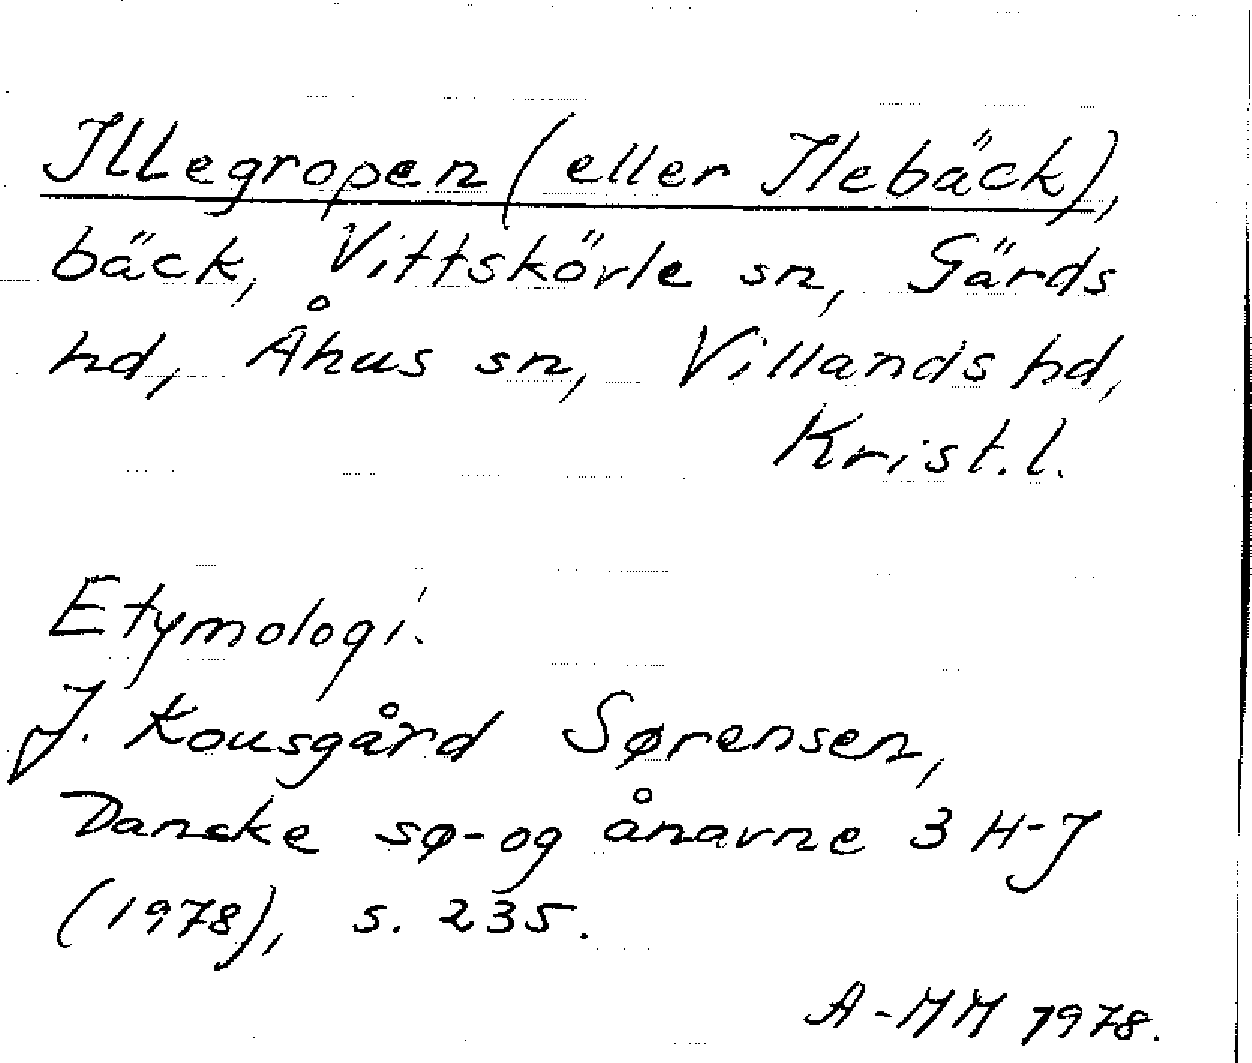 Illegropen (eller Ilebäck),
bäck, Vittskövle sn, Gärds
hd, Åhus sn, Villands hd,
Krist. l.
Etymologi.
J. Kousgård Sørensen,
Danske sø- og ånavne 3 H-J
(1978), s. 235.
A-MM 1978.